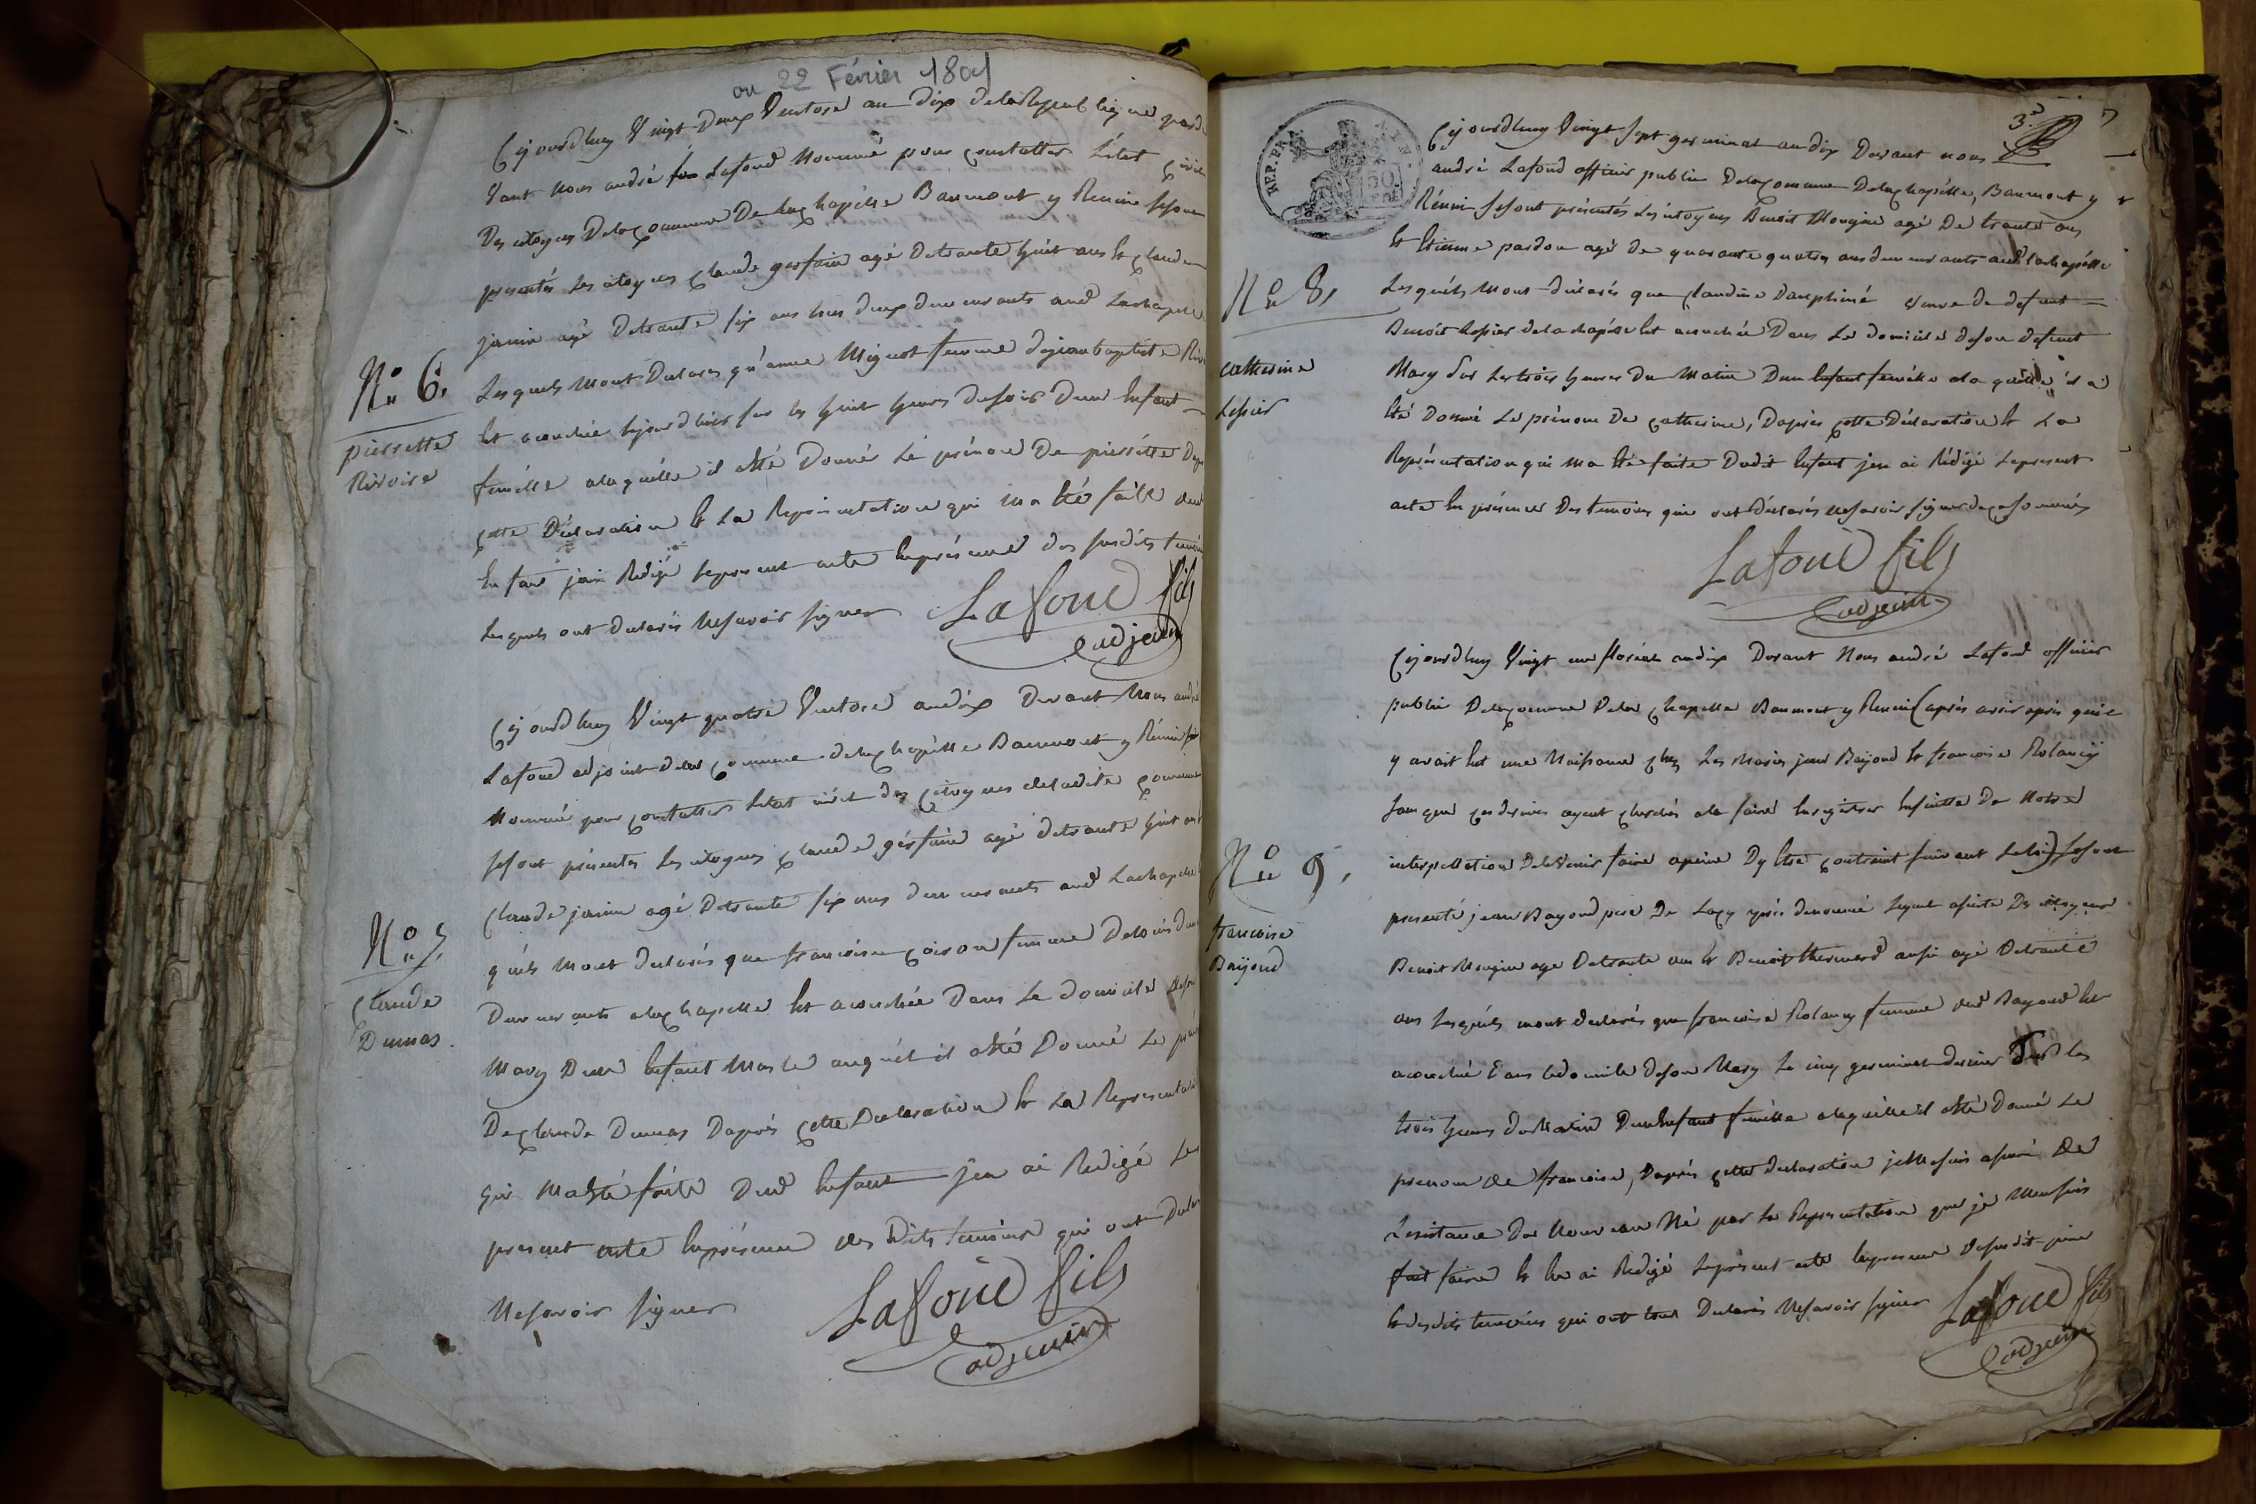 ou 22 Février 1801
Cejourdhuy Vingt Deux Ventose an dix dela Republique parde
Vant nous andré Lafond Nommé pour constatter L'état Civil
Des citoyens Dela Commune Delachapelle Baumont y Reunie sesont
presentés Les citoyens Claude gerfain agé Detrante huit ans et Claude
janin agé Detrante six ans tous deux demeurants aud Lachapelle
Lesquels Mont Declarés qu'anne Mignot femme dejeanbaptiste Riv
N° 6.
pierrette
Rivoire
Et acouchée hyer sur les huit heures dusoir Dune Enfant
femelle alaquelle il aété Donnés Le prénom De pierrette Dap
cette Déclaration Et La Representation qui ma Eté faite dud
Enfant jai Redigé lepresent acte Enprésence des susdits temoins
Lesquels ont declarés Nesavoir signer
Lafond fils
adjoint
Cejourdhuy Vingt quatre Ventose andix Devant Nous andré
Lafond adjoint dela Commune delachapelle Baumont y Réunie
Nommé pour constatter Létat civil des Citoyens deladite Commune
sesont présentés Les citoyens Claude gerfain agé detrante huit ans
Claude janin agé Detrante six ans demeurants aud Lachapelle
N° 7.
Claude
Dumas.
quels Mont declarés que francoise Coiron femme Delouis Dum
Demeurants alachapelle Et acouchée Dans Le domicile deson
Mary Dun Enfant Masle auquel il aété Donné Le pré
De Claude Dumas Daprès Cette Declaration Et La Representati
qui MaEté faite Dud Enfant jen ai Redigé Le
present acte Enprésence des Dits temoins qui ont Declar
Nesavoir signer
Lafond fils
adjoint
3e
7
REP. FRA
50
Cejourdhuy Vingt sept germinal andix Devant nous
andré Lafond officier public Dela Commune Delachapelle, Baumont y
Réunie sesont présentés Les citoyens Benoit Mongin agé De trante ans
Et Etienne pardon agé de quarante quatre ans demeurants aud Lachapelle
N° 8.
Catherine
Lesquels Mont déclarés que Claudine Dauphiné veuve de defunt
Benoit delachapelle Est acouchée Dans Le Domicile deson defunt
Mary Sur Les trois heures Du Matin Dun Enfant femelle ala quelle il a
Eté Donné Le prénom De Catherine, Daprès Cette Déclaration Et La
Représentation qui ma Eté faite Dudit Enfant jen ai Rédigé Lepresent
acte En présence Des temoins qui ont déclarés nesavoir signer decesommés
Lafond fils
adjoint
Cejourdhuy Vingt un floréal andix Devant Nous andré Lafond officier
public Dela Commune Dela Chapelle Baumont y Reunie (après avoir apris quil
y avait Eut une Naissance Chez Les Mariés jean Bajond Et francoise Rolancy
sans que ces derniers ayent cherchés ala faire Enregistrer Ensuitte De Notre
N° 9.
francoise
Bajond
interpellation DeleVenir faire apeine Dy Etre contraint suivant Laloi) sesont
presenté jean Bayond pere De Lacy après denommé Lequel assisté Des citoyens
Benoit Mongin agé Detrante ans Et Benoit thevenard aussi agé Detrante
ans Lesquels mont declarés que francoise Rolancy femme dud Bayond Est
acouchée Dans ledomicile deson Mary Le cinq germinal dernier Sur les
trois heures duMatin DunEnfant femelle alaquelle il aété Donné Le
prenom de francoise, Daprès Cette declaration jeMesuis assuré De
Lexistance Du Nouveau Né par La Representation que je Mensuis
fait faire Et En ai Redigé Leprésent acte Enpresence Dususdit père
Et desdits temoins qui ont tous Declarés Nesavoir signer
Lafond fils
adjoint